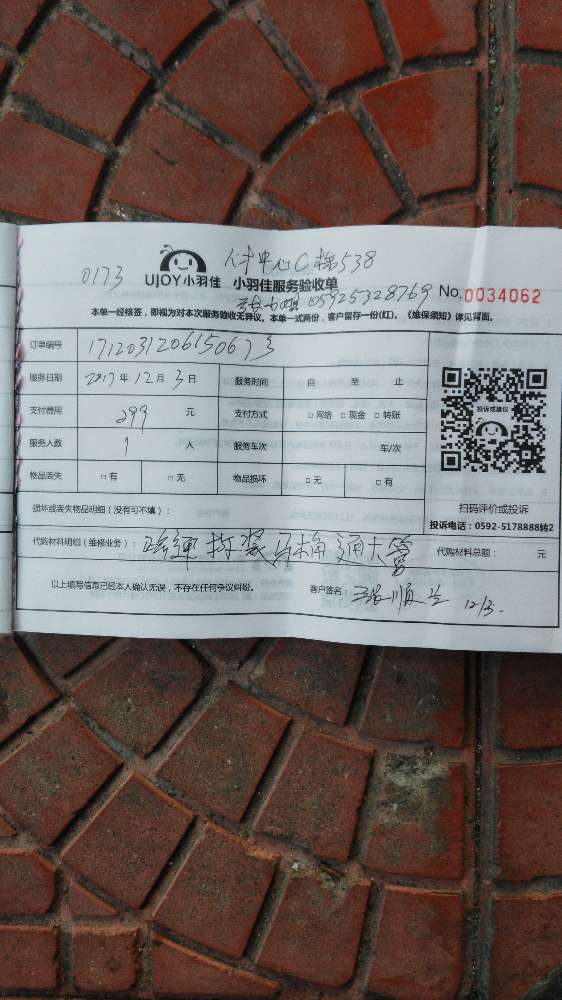 0173 人才中心C栋538
UJOY小羽佳 小羽佳服务验收单
05925328769 No.0034062
本单一经核签,即视为对本次服务验收无异议。本单一式两份,客户留存一份(红)。《维保须知》详见背面。
订单编号 1712031206150673
服务日期 2017年12月3日 服务时间 自 至 止
支付费用 299 元 支付方式 □网络 □现金 □转账
服务人数 1 人 服务车次 车/次
物品丢失 □有 □无 物品损坏 □无 □有
投诉或建议
扫码评价或投诉
投诉电话:0592-5178888转2
损坏或丢失物品明细(没有可不填):
代购材料明细(维修业务): 疏通拆装马桶通大管 代购材料总额: 元
以上填写信息已经本人确认无误,不存在任何争议纠纷。 客户签名: 顺 12/3.